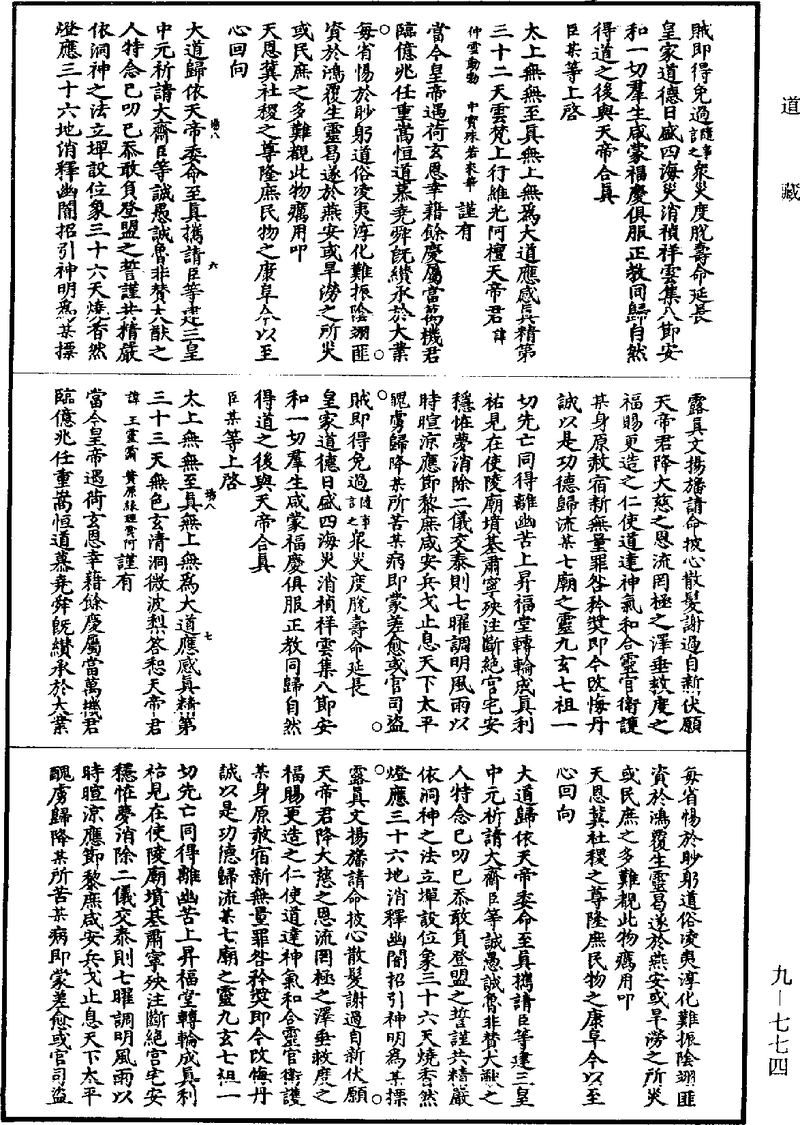 道藏
賊即得免過隨事言之衆災度脫壽命延長
皇家道德日盛四海災消禎祥雲集八節安
和一切羣生咸蒙福慶俱服正教同歸自然
得道之後與天帝合真
臣某等上啓
太上無無至真無上無爲大道應感真精第
三十二天雲梵上行維光阿檀天帝君諱
仲雲勳勃 謹有
當今皇帝遇荷玄恩幸藉餘慶屬當萬機君
臨億兆任重嵩恒道慕堯舜旣纘承於大業
每省惕於眇躬道俗凌夷淳化難振陰翊匪
資於鴻覆生靈曷遂於燕安或旱澇之所災
或民庶之多難覩此物癘用叩
天恩冀社稷之尊隆庶民物之康阜今以至
心回向
大道歸依天帝委命至真攜請臣等建三皇
中元祈請大齋臣等誠愚誠魯非賛大猷之
人特念已叨已忝敢負登盟之誓謹共精嚴
依洞神之法立壇設位象三十六天燒香然
燈應三十六地俏釋幽闇招引神明爲某摽
露真文揚旛請命披心散髮謝過自新伏願
天帝君降大慈之恩流罔極之澤垂救度之
福賜更造之仁使道達神氣和合靈官衛護
某身原赦宿新無量罪咎矜獎即令改悔丹
誠以是功德歸流某七廟之靈九玄七祖一
切先亡同得離幽苦上昇福堂轉輪成真利
祐見在使陵廟墳墓肅寧殃注斷絕宮宅安
穩恠夢消除二儀交泰則七曜調明風雨以
時暄涼應節黎庶咸安兵戈止息天下太平
醜虜歸降某所苦某病即蒙差愈或官司盜
賊即得免過隨事言之衆災度脫壽命延長
皇家道德日盛四海災消禎祥雲集八節安
和一切羣生咸蒙福慶俱服正教同歸自然
得道之後與天帝合真
臣某等上啓
太上無無至真無上無爲大道應感真精第
三十三天無色玄清洞微波梨答恕天帝君
諱 謹有
當今皇帝遇荷玄恩幸藉餘慶屬當萬機君
臨億兆任重嵩恒道慕堯舜旣纘承於大業
每省惕於眇躬道俗凌夷淳化難振陰翊匪
資於鴻覆生靈曷遂於燕安或旱澇之所災
或民庶之多難覩此物癘用叩
天恩冀社稷之尊隆庶民物之康阜今以至
心回向
大道歸依天帝委命至真攜請臣等建三皇
中元祈請大齋臣等誠愚誠魯非賛大猷之
人特念已叨已忝敢負登盟之誓謹共精嚴
依洞神之法立壇設位象三十六天燒香然
燈應三十六地消釋幽闇招引神明爲某摽
露真文揚旛請命披心散髮謝過自新伏願
天帝君降大慈之恩流罔極之澤垂救度之
福賜更造之仁使道達神氣和合靈官衛護
某身原赦宿新無量罪咎矜獎即令改悔丹
誠以是功德歸流某七廟之靈九玄七祖一
切先亡同得離幽苦上昇福堂轉輪成真利
祐見在使陵廟墳墓肅寧殃注斷絕宮宅安
穩恠夢消除二儀交泰則七曜調明風雨以
時暄涼應節黎庶咸安兵戈止息天下太平
醜虜歸降某所苦某病即蒙差愈或官司盜
九—七七四